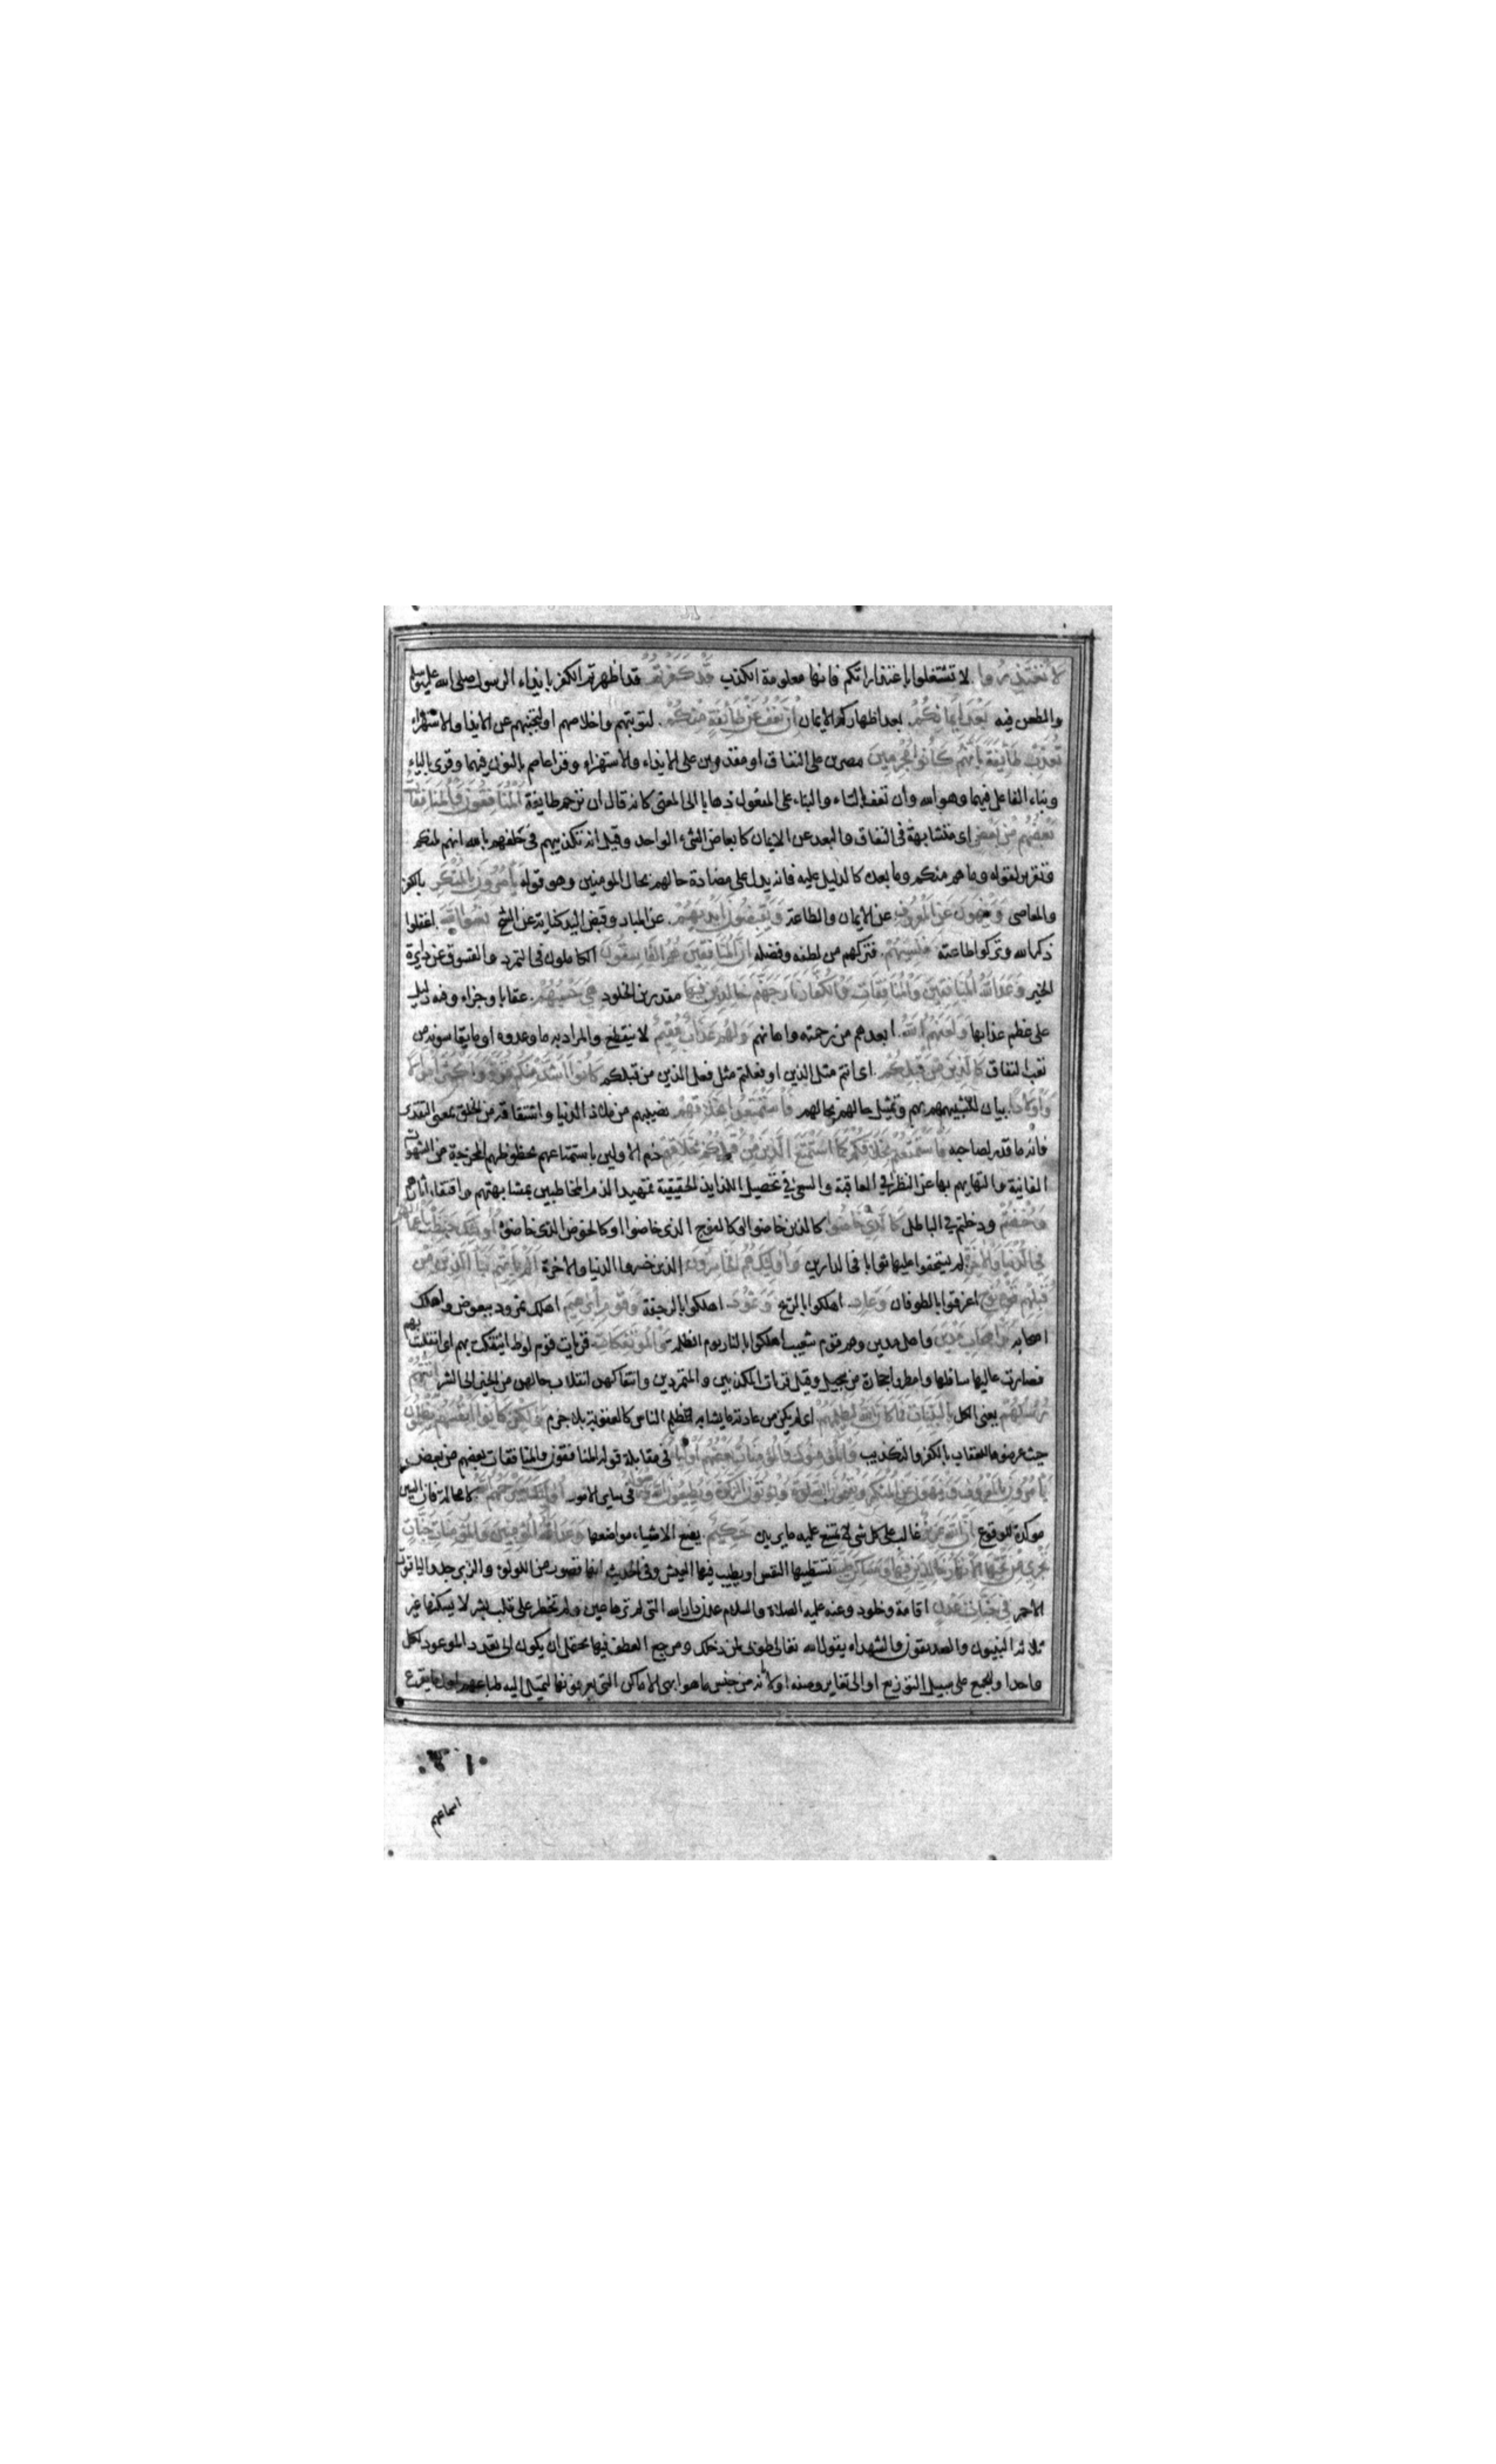 لا تعتذروا لا تشتغلوا باعتذاراتكم فانها معلومة الكذب قد كفرتم قد اظهرتم الكفر بايذاء الرسول صلى الله عليه وسلم
والطعن فيه بعد ايمانكم بعد اظهاركم الايمان ان نعف عن طائفة منكم لتوبتهم واخلاصهم او لتجنبهم عن الايذا والاستهزاء
نعذب طائفة بانهم كانوا مجرمين مصرين على النفاق او مقدمين على الايذاء والاستهزاء وقرا عاصم بالنون فيهما وقرى بالياء
وبناء الفاعل فيهما وهو الله وان تعف بالتاء والبناء على المفعول ذهابا الى المعنى كانه قال ان ترحم طايفة المنافقون والمنافقات
بعضهم من بعض اى متشابهة فى النفاق والبعد عن الايمان كابعاض الشىء الواحد وقيل انه تكذيبهم فى حلفهم بالله انهم لمنكم
وتقرير لقوله وما هم منكم وما بعده كالدليل عليه فانه يدل على مضادة حالهم بحال المومنين وهو قوله يامرون بالمنكر بالكفر
والمعاصى وينهون عن المعروف عن الايمان والطاعة ويقبضون ايديهم عن المبار وقبض اليد كناية عن الشح نسوا الله اغفلوا
ذكر الله وتركوا طاعته فنسيهم فتركهم من لطفه وفضله ان المنافقين هم الفاسقون الكاملون فى التمرد والفسوق عن دايرة
الخير وعد الله المنافقين والمنافقات والكفار نار جهنم خالدين فيها مقدرين الخلود هى حسبهم عقابا وجزاء وفيه دليل
على عظم عذابها ولعنهم الله ابعدهم من رحمته واهانهم ولهم عذاب مقيم لا ينقطع والمراد به ما وعدوه او ما يقاسونه من
تعب النفاق كالذين من قبلكم اى انتم مثل الذين او فعلتم مثل فعل الذين من قبلكم كانوا اشد منكم قوة واكثر اموالا
واولادا بيان لتشبيههم بهم وتمثيل حالهم بحالهم فاستمتعوا بخلاقهم نصيبهم من ملاذ الدنيا واشتقاقه من الخلق بمعنى التقدير
فانه ما قدر لصاحبه فاستمتعتم بخلاقكم كما استمتع الذين من قبلكم بخلاقهم ذم الاولين باستمتاعهم بحظوظهم المخدجة من الشهوات
الفانية والتهايهم بها عن النظر فى العاقبة والسعى فى تحصيل اللذايذ الحقيقية تمهيدا لذم المخاطبين بمشابهتهم واقتفاء اثارهم
وخضتم ودخلتم فى الباطل كالذى خاضوا كالذين خاضوا او كالفوج الذى خاضوا او كالخوض الذى خاضوه اولئك حبطت اعمالهم
فى الدنيا والاخرة لم يستحقوا عليها ثوابا فى الدارين واولئك هم الخاسرون الذين خسروا الدنيا والاخرة الم ياتهم نبا الذين من
قبلهم قوم نوح اغرقوا بالطوفان وعاد اهلكوا بالريح وثمود اهلكوا بالرجفة وقوم ابراهيم اهلك نمرود ببعوض واهلك
اصحابه واصحاب مدين واهل مدين وهم قوم شعيب اهلكوا بالنار يوم الظلة والمؤتفكات قريات قوم لوط ائتفكت بهم اى انقلبت بهم
فصارت عاليها سافلها وامطروا حجارة من سجيل وقيل قريات المكذبين والمتمردين وائتفاكهن انقلاب حالهن من الخير الى الشر اتتهم
رسلهم يعنى الكل بالبينات فما كان الله ليظلمهم اى لم يكن من عادته ما يشابه ظلم الناس كالعقوبة بلا جرم ولكن كانوا انفسهم يظلمون
حيث عرضوها للعقاب بالكفر والتكذيب والمؤمنون والمؤمنات بعضهم اولياء بعض فى مقابلة قوله المنافقون والمنافقات بعضهم من بعض
يامرون بالمعروف وينهون عن المنكر ويقيمون الصلوة ويؤتون الزكوة ويطيعون الله ورسوله فى ساير الامور اولئك سيرحمهم الله لا محالة فان السين
موكدة للوقوع ان الله عزيز غالب على كل شى لا يمتنع عليه ما يريده حكيم يضع الاشياء مواضعها وعد الله المؤمنين والمؤمنات جنات
تجرى من تحتها الانهار خالدين فيها ومساكن طيبة تستطيبها النفس او يطيب فيها العيش وفى الحديث انها قصور من اللولؤ والزبرجد والياقوت
الاحمر فى جنات عدن اقامة وخلود وعنه عليه الصلاة والسلام عدن دار الله التى لم ترها عين ولم تخطر على قلب بشر لا يسكنها غير
ثلاثة النبيون والصديقون والشهداء يقول الله تعالى طوبى لمن دخلك ومرجع العطف فيها يحتمل ان يكون الى تعدد الموعود لكل
واحد او للجميع على سبيل التوزيع او الى تغاير وصفه او لانه من جنس ما هو ابهى الاماكن التى يعرفونها لتميل اليه طباعهم اول ما يقرع
اسماعهم